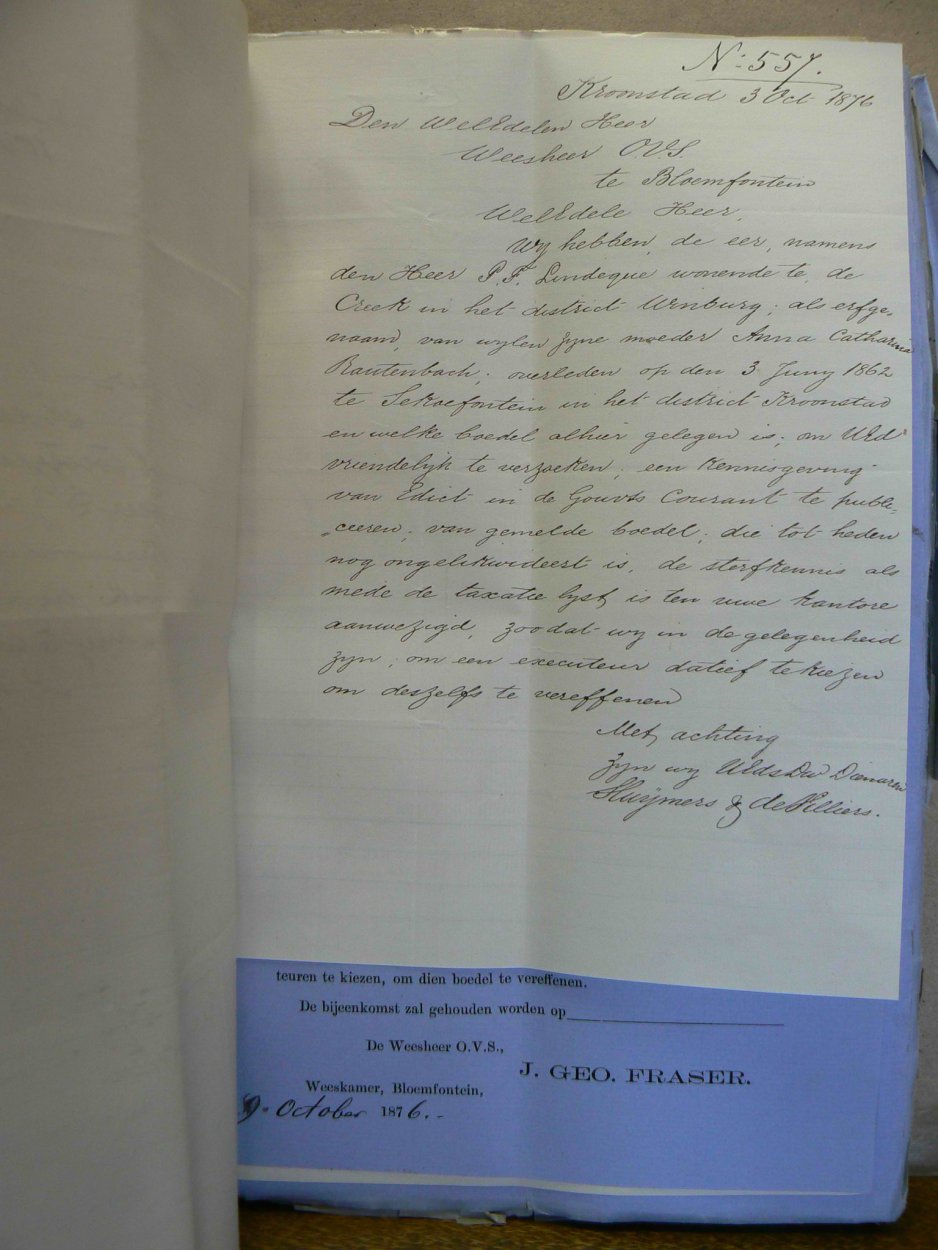 No: 557.
Kroonstad 3 Oct 1876
Den WelEdelen Heer
Weesheer O.V.S.
te Bloemfontein
WelEdele Heer,
Wy hebben, de eer, namens
den Heer P.F. Lindeque wonende te, de
Creek in het district Winburg; als erfge,
naam, van wylen zyne moeder Anna Catharina
Rautenbach; overleden op den 3 Juny 1862
te Sekoefontein in het district Kroonstad
en welke boedel alhier gelegen is; om UEd
vriendelijk te verzoeken; een Kennisgeving
van Edict in de Gouvts Courant te publi=
„ceeren, van gemelde boedel; die tot heden
nog ongelikwideert is, de sterfkennis als
mede de taxatie lyst is ten uwe kantore
aanwezigd, zoodat wy in de gelegenheid
zyn; om een executeur datief te kiezen
om deszelfs te vereffenen
Met, achting
zyn wy UEds Dw Dienaren
& de Villiers.
teuren te kiezen, om dien boedel te vereffenen.
De bijeenkomst zal gehouden worden op
De Weesheer O.V.S.,
J. GEO. FRASER.
Weeskamer, Bloemfontein,
9. October 1876.-